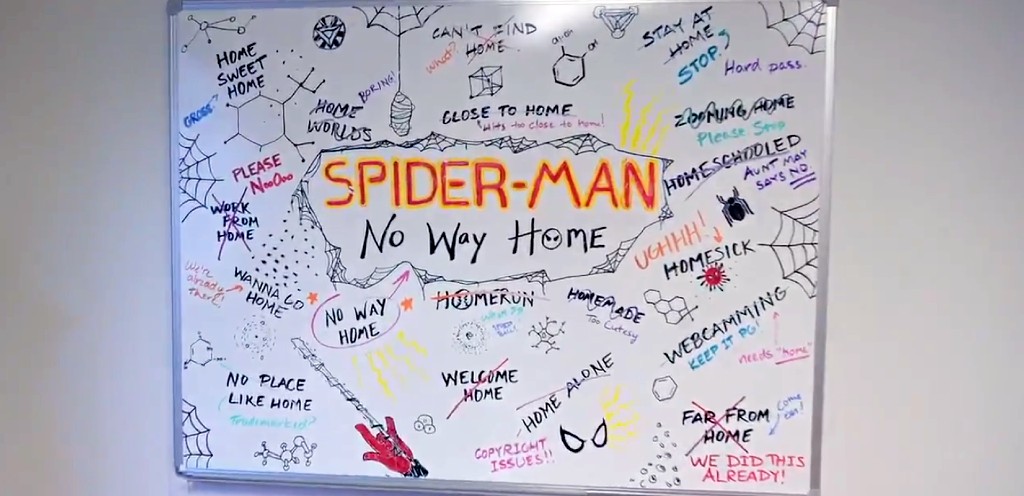 HOME
SWEET
HOME
GROSS!
HOME
WORLDS
BORING!
CAN'T FIND
HOME
What?
CLOSE TO HOME
Hits too close to home!
STAY AT
HOME
STOP.
Hard pass.
ZOOMING HOME
Please Stop
HOMESCHOOLED
AUNT MAY
SAYS NO
PLEASE
NooOoo
WORK
FROM
HOME
SPIDER-MAN
No Way Home
UGHHH!
HOMESICK
We're
already
there!
WANNA GO
HOME
NO WAY
HOME
HOOMERUN
HOMEMADE
Too Cutesy
WEBCAMMING
KEEP IT PG!
needs "home"
NO PLACE
LIKE HOME
Trademarked?
WELCOME
HOME
HOME ALONE
COPYRIGHT
ISSUES!!
FAR FROM
HOME
Come
on!
WE DID THIS
ALREADY!